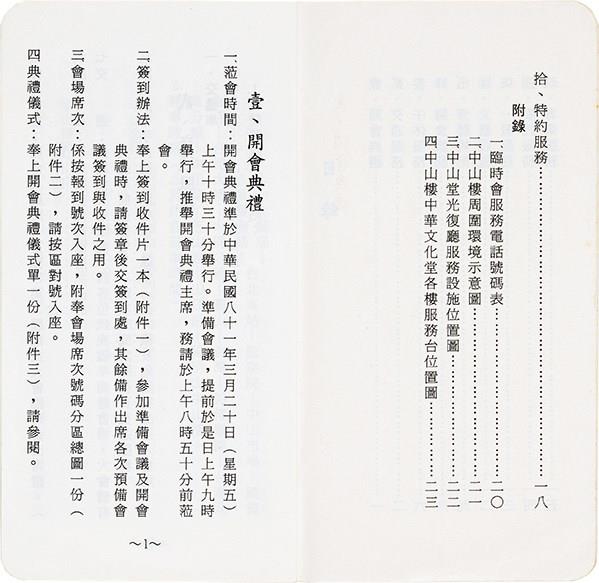 拾、特約服務……………………………………一八
附錄
一、臨時會服務電話號碼表……………………二〇
二、中山樓周圍環境示意圖……………………二一
三、中山堂光復廳服務設施位置圖……………二二
四、中山樓中華文化堂各樓服務台位置圖……二三
壹、開會典禮
一、蒞會時間：開會典禮準於中華民國八十一年三月二十日（星期五）
上午十時三十分舉行。準備會議，提前於是日上午九時
舉行，推舉開會典禮主席，務請於上午八時五十分前蒞
會。
二、簽到辦法：奉上簽到收件片一本（附件一），參加準備會議及開會
典禮時，請簽章後交簽到處，其餘備作出席各次預備會
議簽到與收件之用。
三、會場席次：係按報到號次入座，附奉會場席次號碼分區總圖一份（
附件二），請按區對號入座。
四、典禮儀式：奉上開會典禮儀式單一份（附件三），請參閱。
～1～